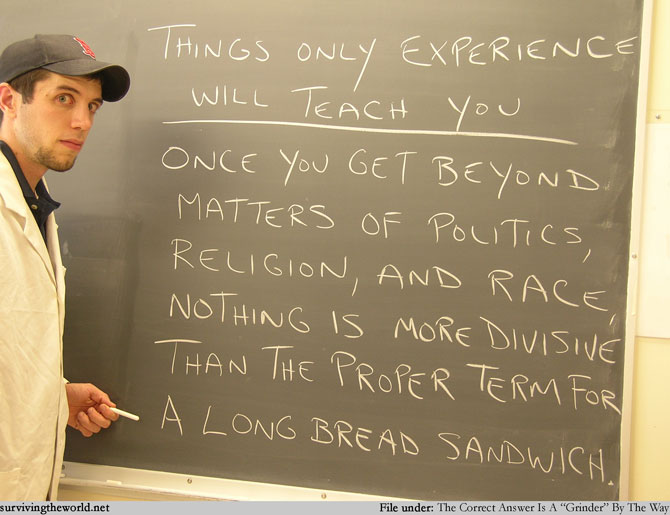 THINGS ONLY EXPERIENCE
WILL TEACH YOU
ONCE YOU GET BEYOND
MATTERS OF POLITICS,
RELIGION, AND RACE,
NOTHING IS MORE DIVISIVE
THAN THE PROPER TERM FOR
A LONG BREAD SANDWICH.
survivingtheworld.net
File under: The Correct Answer Is A “Grinder” By The Way